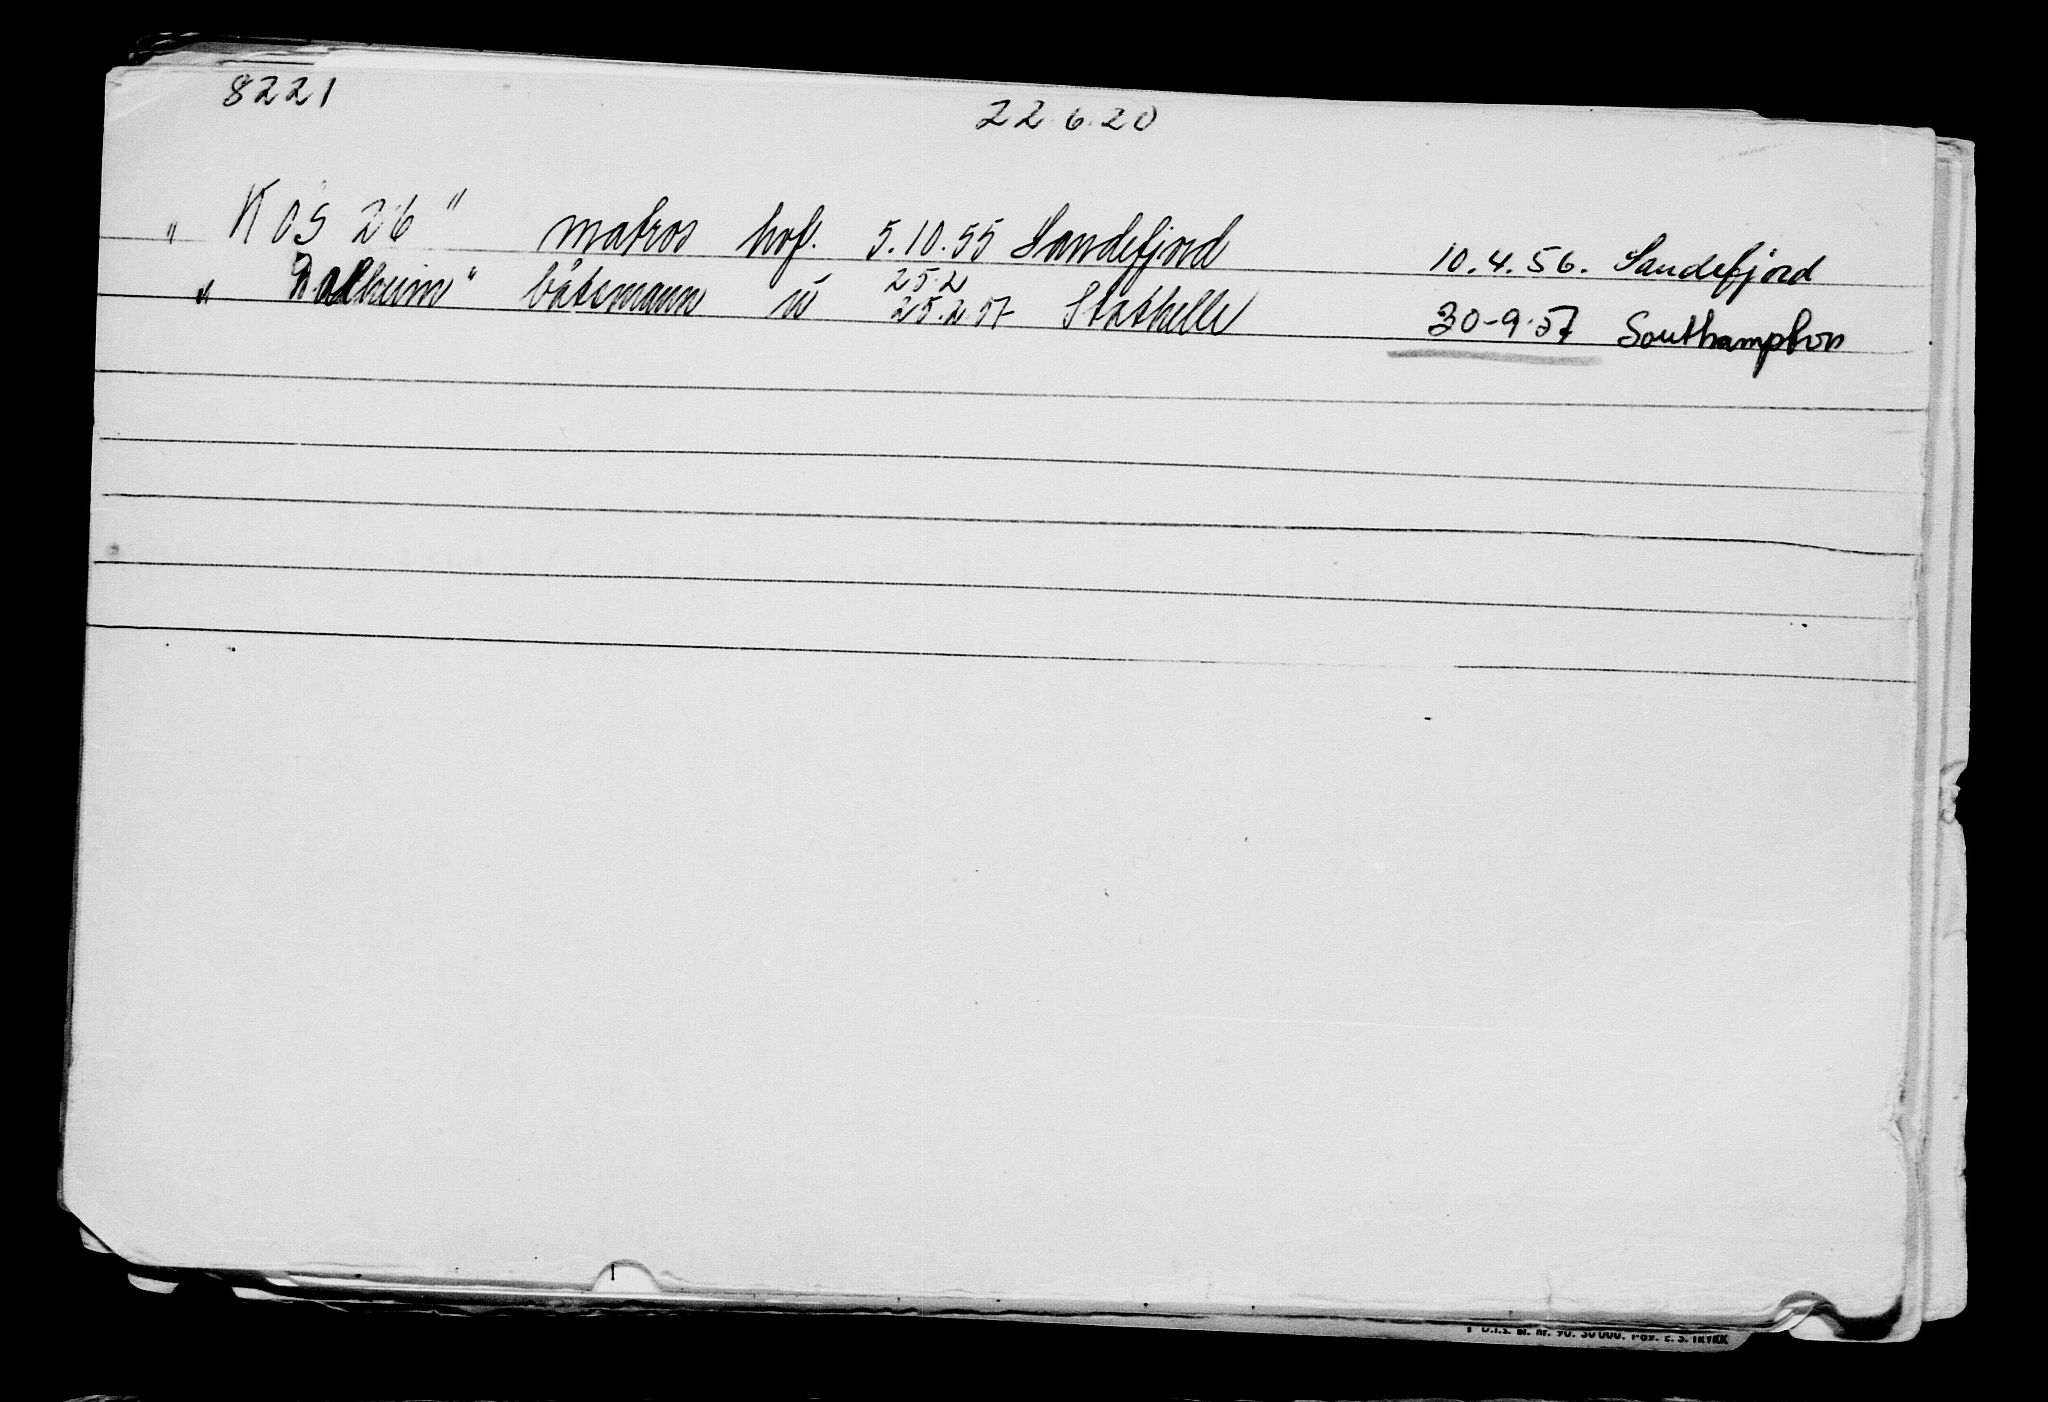 8221 22.6.20
" KOS 26" matros hvf. 5.10.55 Sandefjord 10.4.56. Sandefjord
25.2
" Dalheim" båtsmann u 25.2.57 Stathelle 30-9-57 Southampton